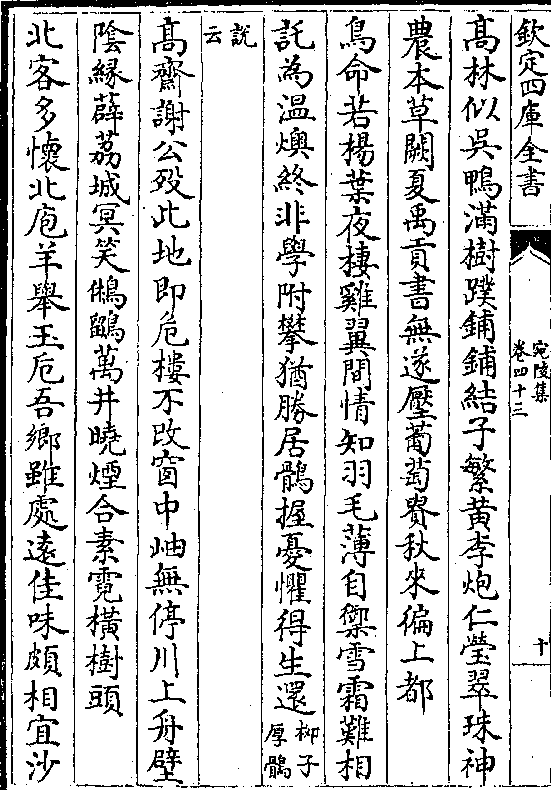 欽定四庫全書
宛陵集
卷四十三
十
高林似吳鴨滿樹蹼鋪鋪結子繁黃李炮仁瑩翠珠神
農本草闕夏禹貢書無遂壓葡萄貴秋來徧上都
鳥命若楊葉夜棲雞翼間情知羽毛薄自禦雪霜難相
託為溫燠終非學附攀猶勝居鶻握憂懼得生還栁子厚鶻
說云
高齋謝公歿此地即危樓不改窗中岫無停川上舟壁
陰緣薜荔城冥笑鵂鶹萬井曉煙合素霓橫樹頭
北客多懷北庖羊舉玉卮吾鄉雖處遠佳味頗相宜沙